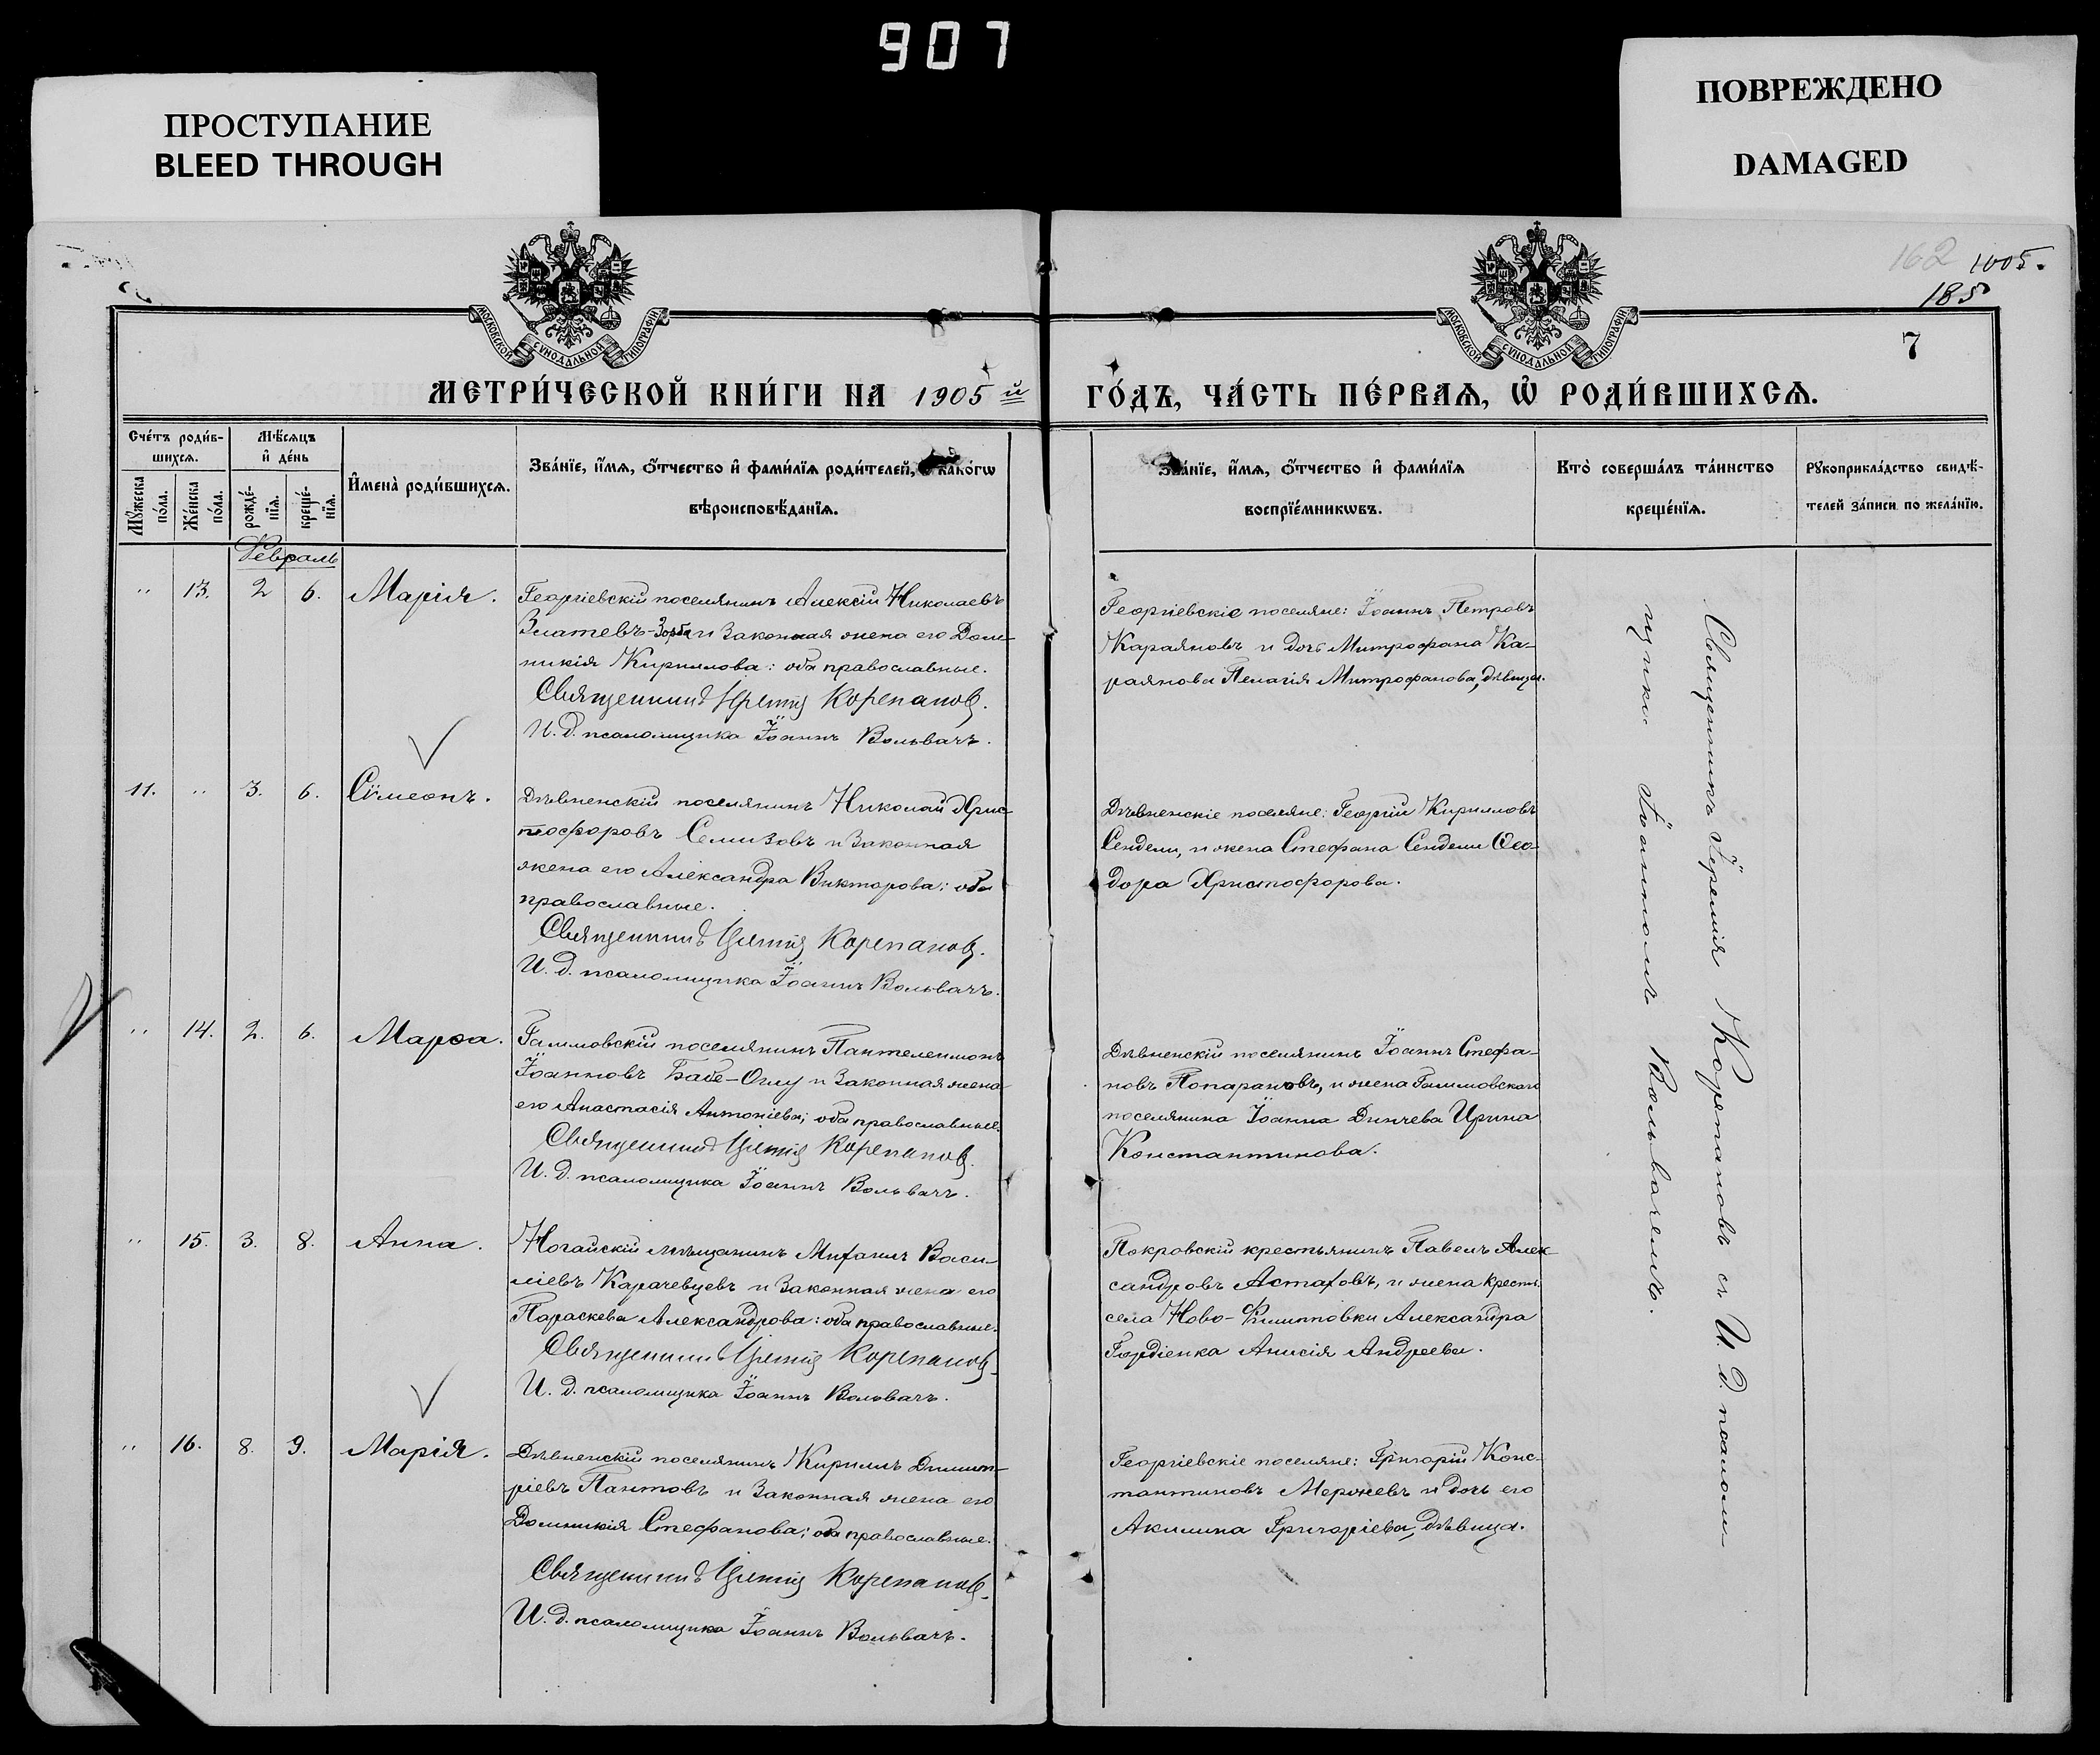 907
ПРОСТУПАНИЕ
BLEED THROUGH
ПОВРЕЖДЕНО
DAMAGED
162 1005.
185
7
МОСКОВСКОЙ СѴНОДАЛЬНОЙ ТИПОГРАФІИ
МОСКОВСКОЙ СѴНОДАЛЬНОЙ ТИПОГРАФІИ
МЕТРИ́ЧЕСКОЙ КНИ́ГИ НА 1905 й ГО́ДЪ, ЧА́СТЬ ПЕ́РВАѦ, Ѽ РОДИ́ВШИХСѦ.
Сче́тъ роди́в-
шихсѧ.
Мꙋ́жеска по́ла.
Же́нска по́ла.
Мѣ́сѧцъ
и҆ де́нь
рожде́-
нїѧ.
креще́-
нїѧ.
И҆мена̀ роди́вшихсѧ.
Зва́нїе, и҆́мѧ, о҆́тчество и҆ фами́лїѧ роди́телей, и҆ како́гѡ
вѣроисповѣ́данїѧ.
Зва́нїе, и҆́мѧ, о҆́тчество и҆ фами́лїѧ
воспрїе́мникѡвъ.
Кто̀ соверша́лъ та́инство
креще́нїѧ.
Рꙋкоприкла́дство свидѣ́-
телей за́писи по жела́нїю.
Февраль
" 13. 2 6. Марія.
Георгіевскій поселянинъ Алексій Николаевъ
Златевъ-Зорба и законная жена его Доми-
никія Кириллова: оба православные.
Священникъ Іеремія Корепановъ.
И. д. псаломщика Іоаннъ Вольвачъ.
Георгіевскіе поселяне: Іоаннъ Петровъ
Караяновъ и дочь Митрофана Ка-
раянова Пелагія Митрофанова, дѣвица.
11. " 3. 6. Сѵмеонъ.
Дѣвненскій поселянинъ Николай Хрис-
тофоровъ Семизовъ и законная
жена его Александра Викторова: оба
православные.
Священникъ Іеремія Корепановъ.
И. д. псаломщика Іоаннъ Вольвачъ.
Дѣвненскіе поселяне: Георгій Кирилловъ
Сендели, и жена Стефана Сендели Ѳео-
дора Христофорова.
" 14. 2. 6. Марѳа.
Галимовскій поселянинъ Пантелеимонъ
Іоанновъ Бабе-Оглу и законная жена
его Анастасія Антоніева; оба православные.
Священникъ Іеремія Корепановъ.
И. д. псаломщика Іоаннъ Вольвачъ.
Дѣвненскій поселянинъ Іоаннъ Стефа-
новъ Попарановъ, и жена Галимовскаго
поселянина Іоанна Динчева Ирина
Константинова.
" 15. 3. 8. Анна.
Ногайскій мѣщанинъ Михаилъ Васи-
ліевъ Карачевцевъ и законная жена его
Параскева Александрова: оба православные.
Священникъ Іеремія Корепановъ.
И. д. псаломщика Іоаннъ Вольвачъ.
Покровскій крестьянинъ Павелъ Алек-
сандровъ Астаховъ, и жена крест.
села Ново-Филипповки Александра
Гордіенка Анисія Андреева.
" 16. 8. 9. Марія.
Дѣвненскій поселянинъ Кириллъ Димит-
ріевъ Пантовъ и законная жена его
Домникія Стефанова; оба православные.
Священникъ Іеремія Корепановъ.
И. д. псаломщика Іоаннъ Вольвачъ.
Георгіевскіе поселяне: Григорій Конс-
тантиновъ Мержевъ и дочь его
Акилина Григоріева, дѣвица.
Священникъ Іеремія Корепановъ съ И. д. псалом-
щика Іоанномъ Вольвачемъ.